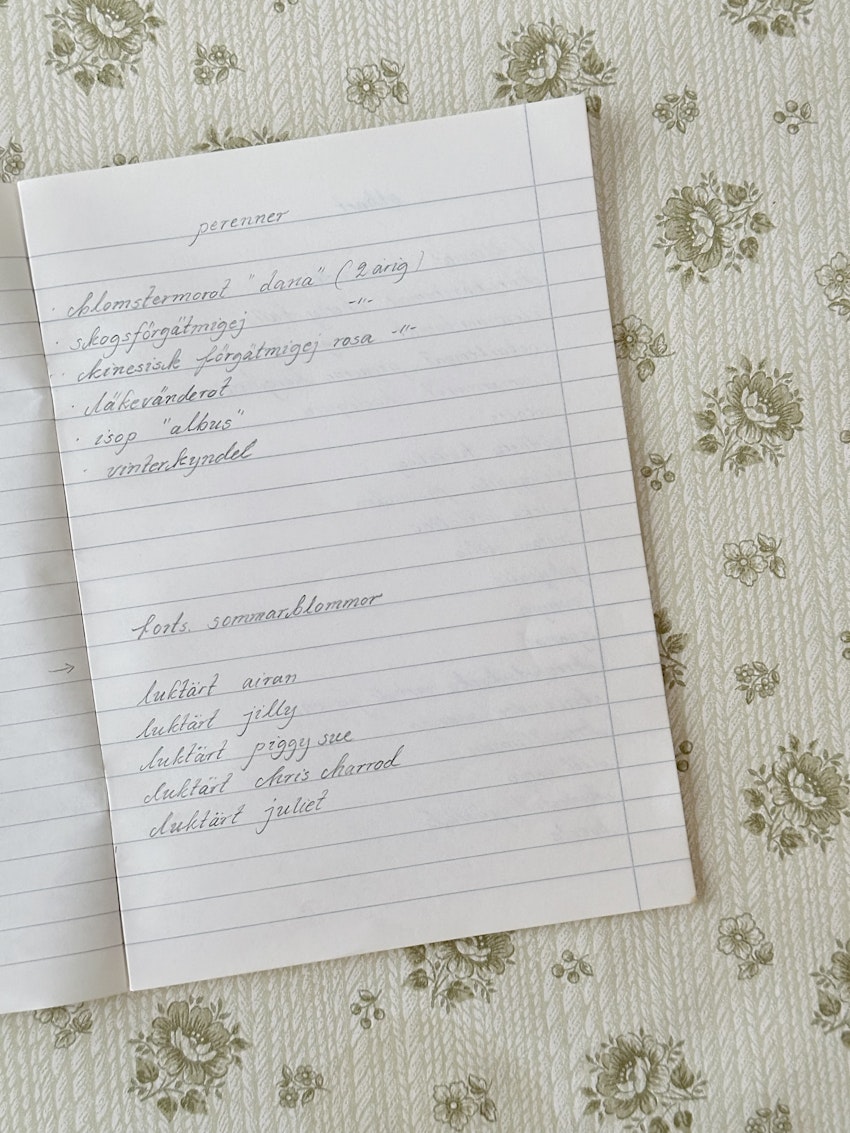 perenner
· blomstermorot "dana" (2 årig)
· skogsförgätmigej -"-
· kinesisk förgätmigej rosa -"-
· läkevänderot
· isop "albus"
· vinterkyndel
forts. sommarblommor
→
luktärt airan
luktärt jilly
luktärt piggy sue
luktärt chris charrod
luktärt juliet